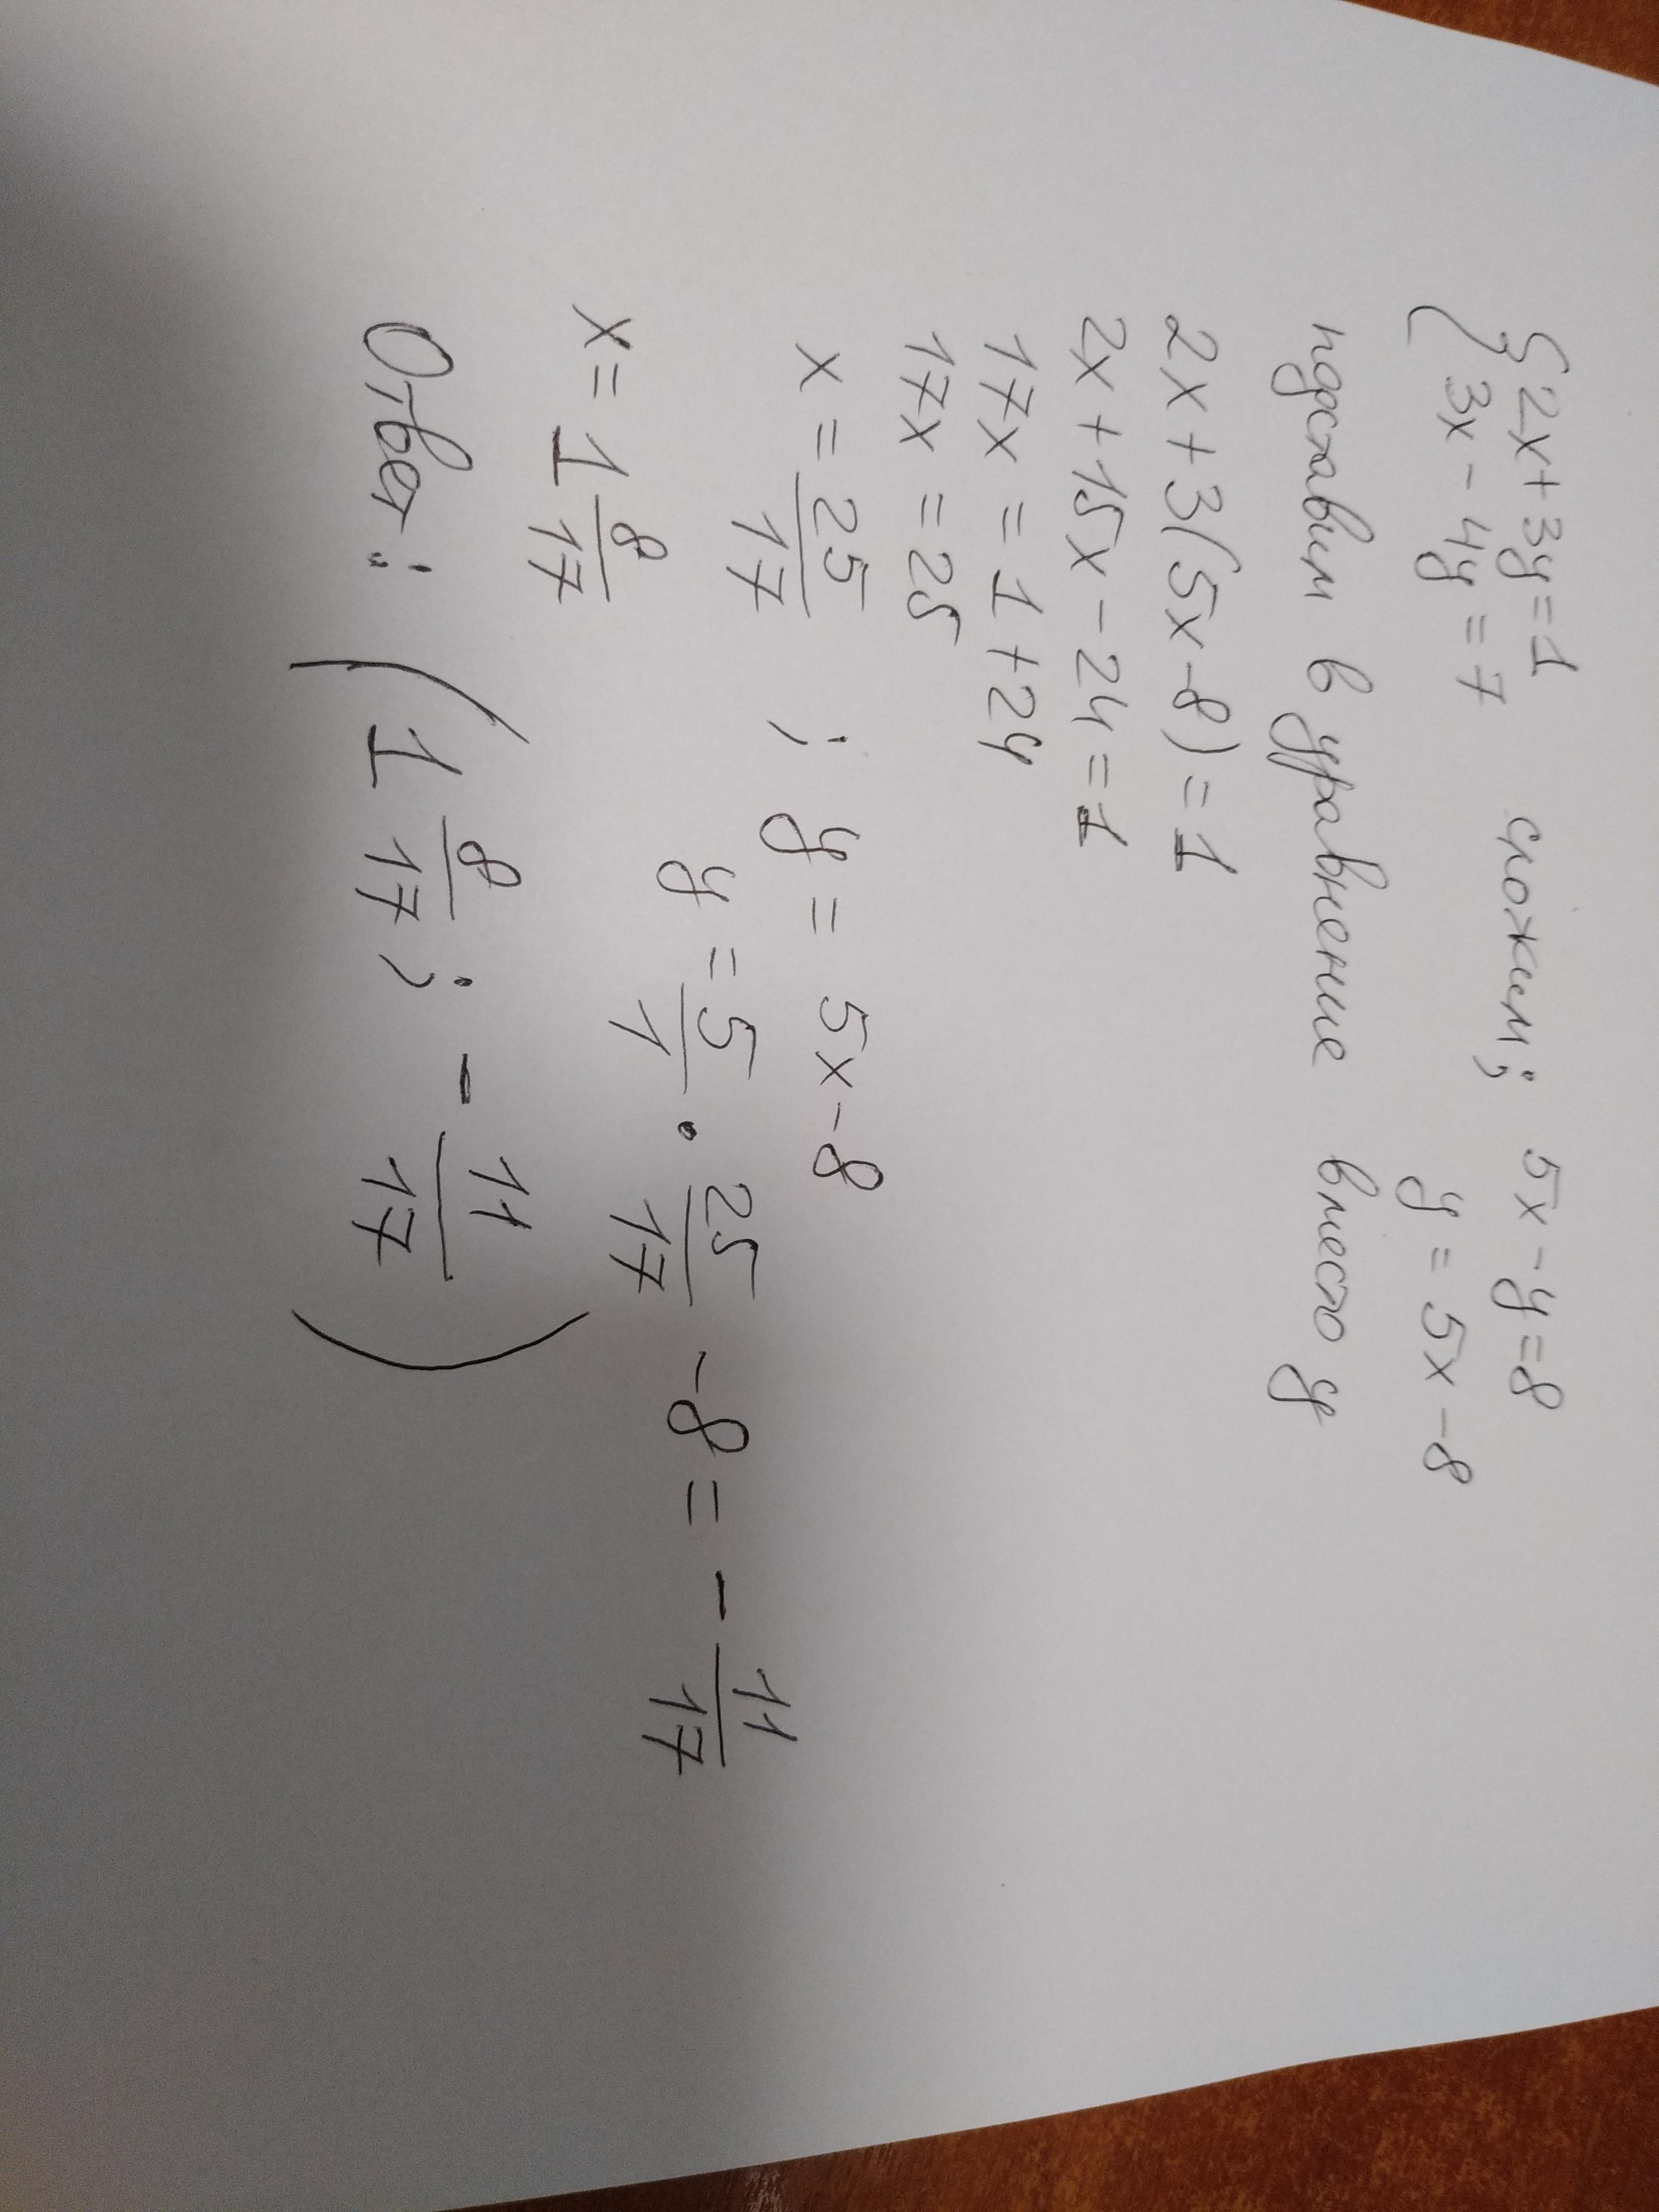 {2x+3y=1 сложим; 5x-y=8
3x-4y=7 y=5x-8
подставим в уравнение вместо y
2x+3(5x-8)=1
2x+15x-24=1
17x=1+24
17x=25
x=25/17 ; y=5x-8
y=5/1·25/17-8=-11/17
x=1 8/17
Ответ: (1 8/17; -11/17)